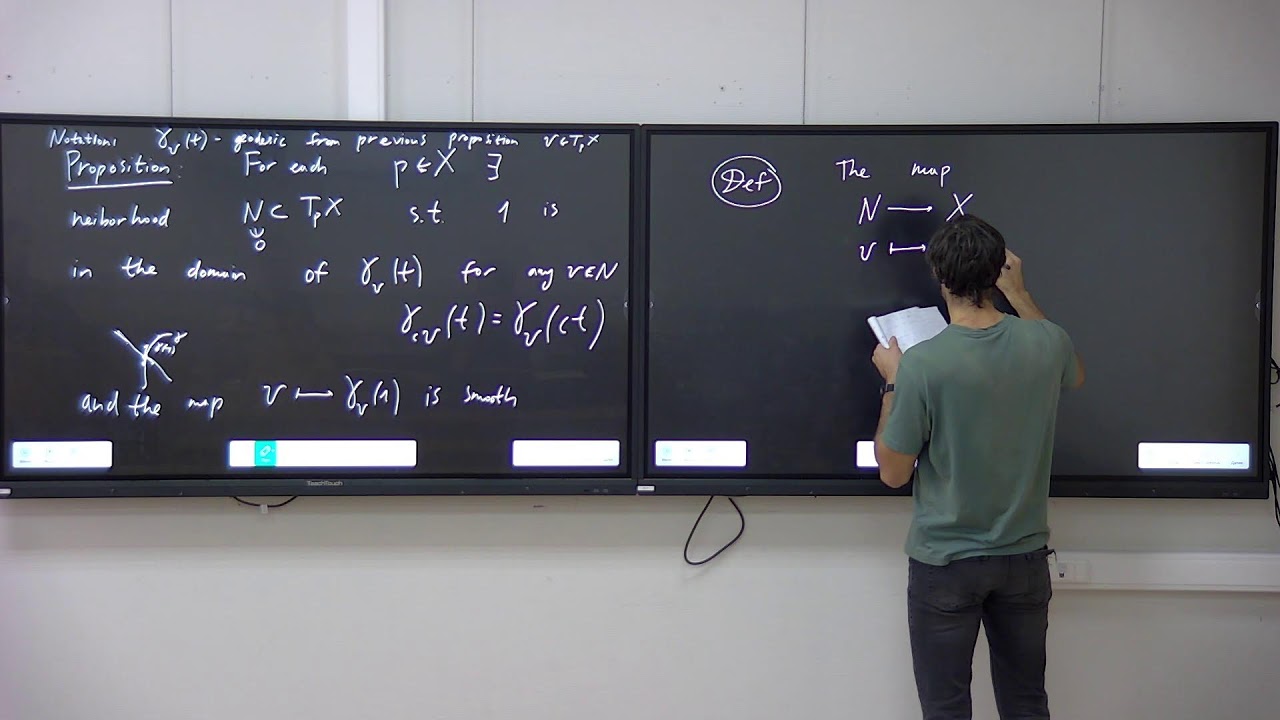 Notation: γ_v(t) - geodesic from previous proposition v ∈ T_pX
Proposition: For each p ∈ X ∃
neiborhood N ⊂ T_pX s.t. 1 is
0
in the domain of γ_v(t) for any v ∈ N
γ_cv(t) = γ_v(ct)
and the map v ⟼ γ_v(1) is smooth
TeachTouch
Def
The map
N ⟶ X
v ⟼